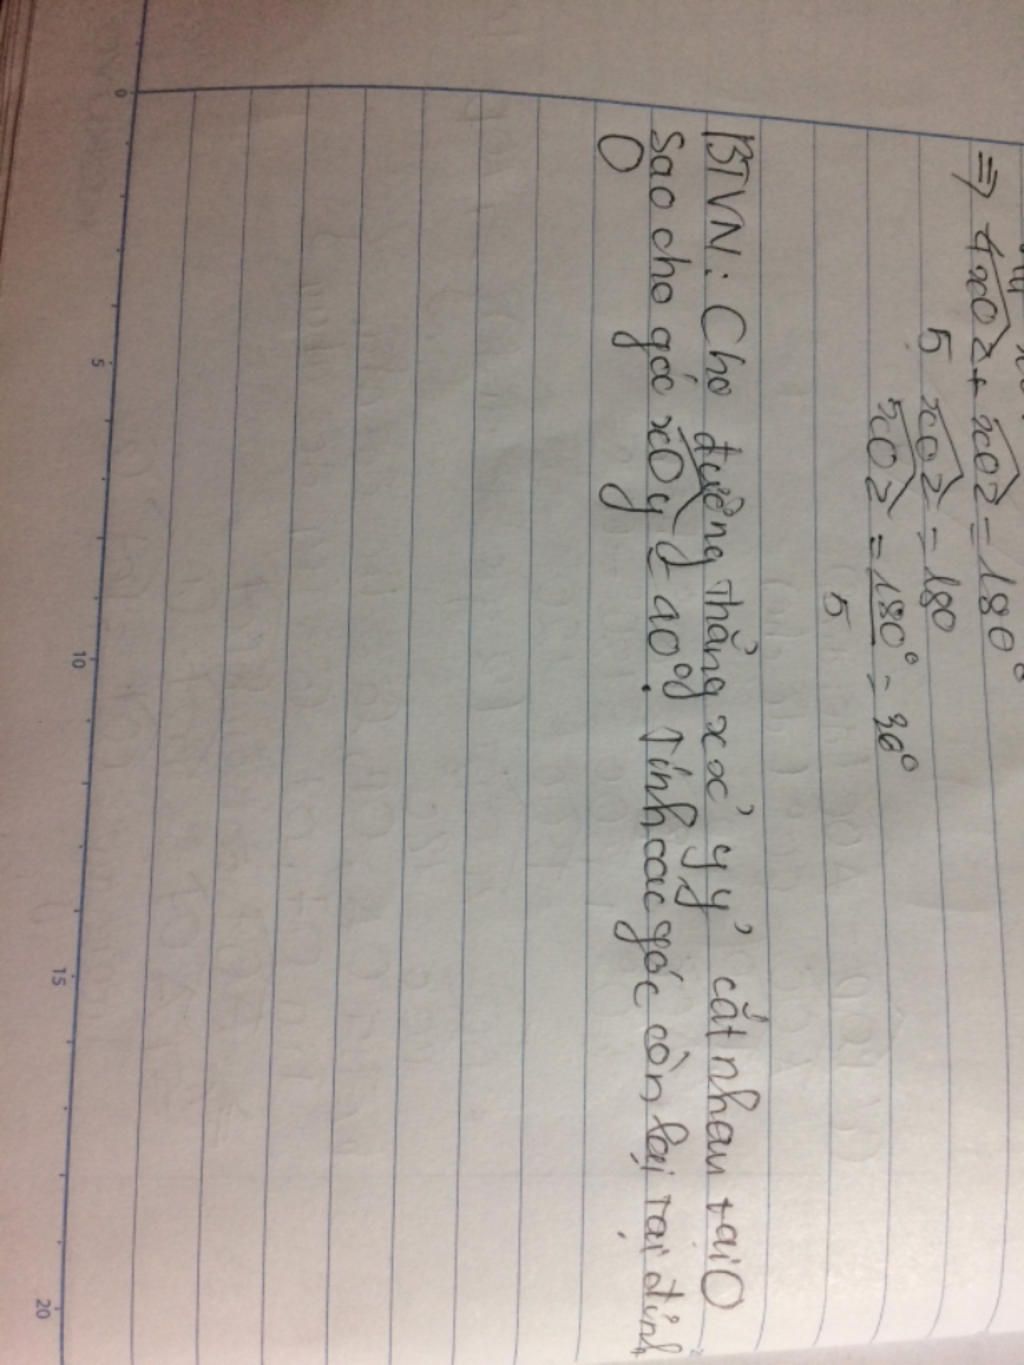 ⇒ 4xOz + xOz = 180°
5 xOz = 180
xOz = 180° = 36°
5
BTVN: Cho đường thẳng xx' yy' cắt nhau tại O
sao cho góc xOy = 40°. Tính các góc còn lại tại đỉnh
O
0
5
10
15
20